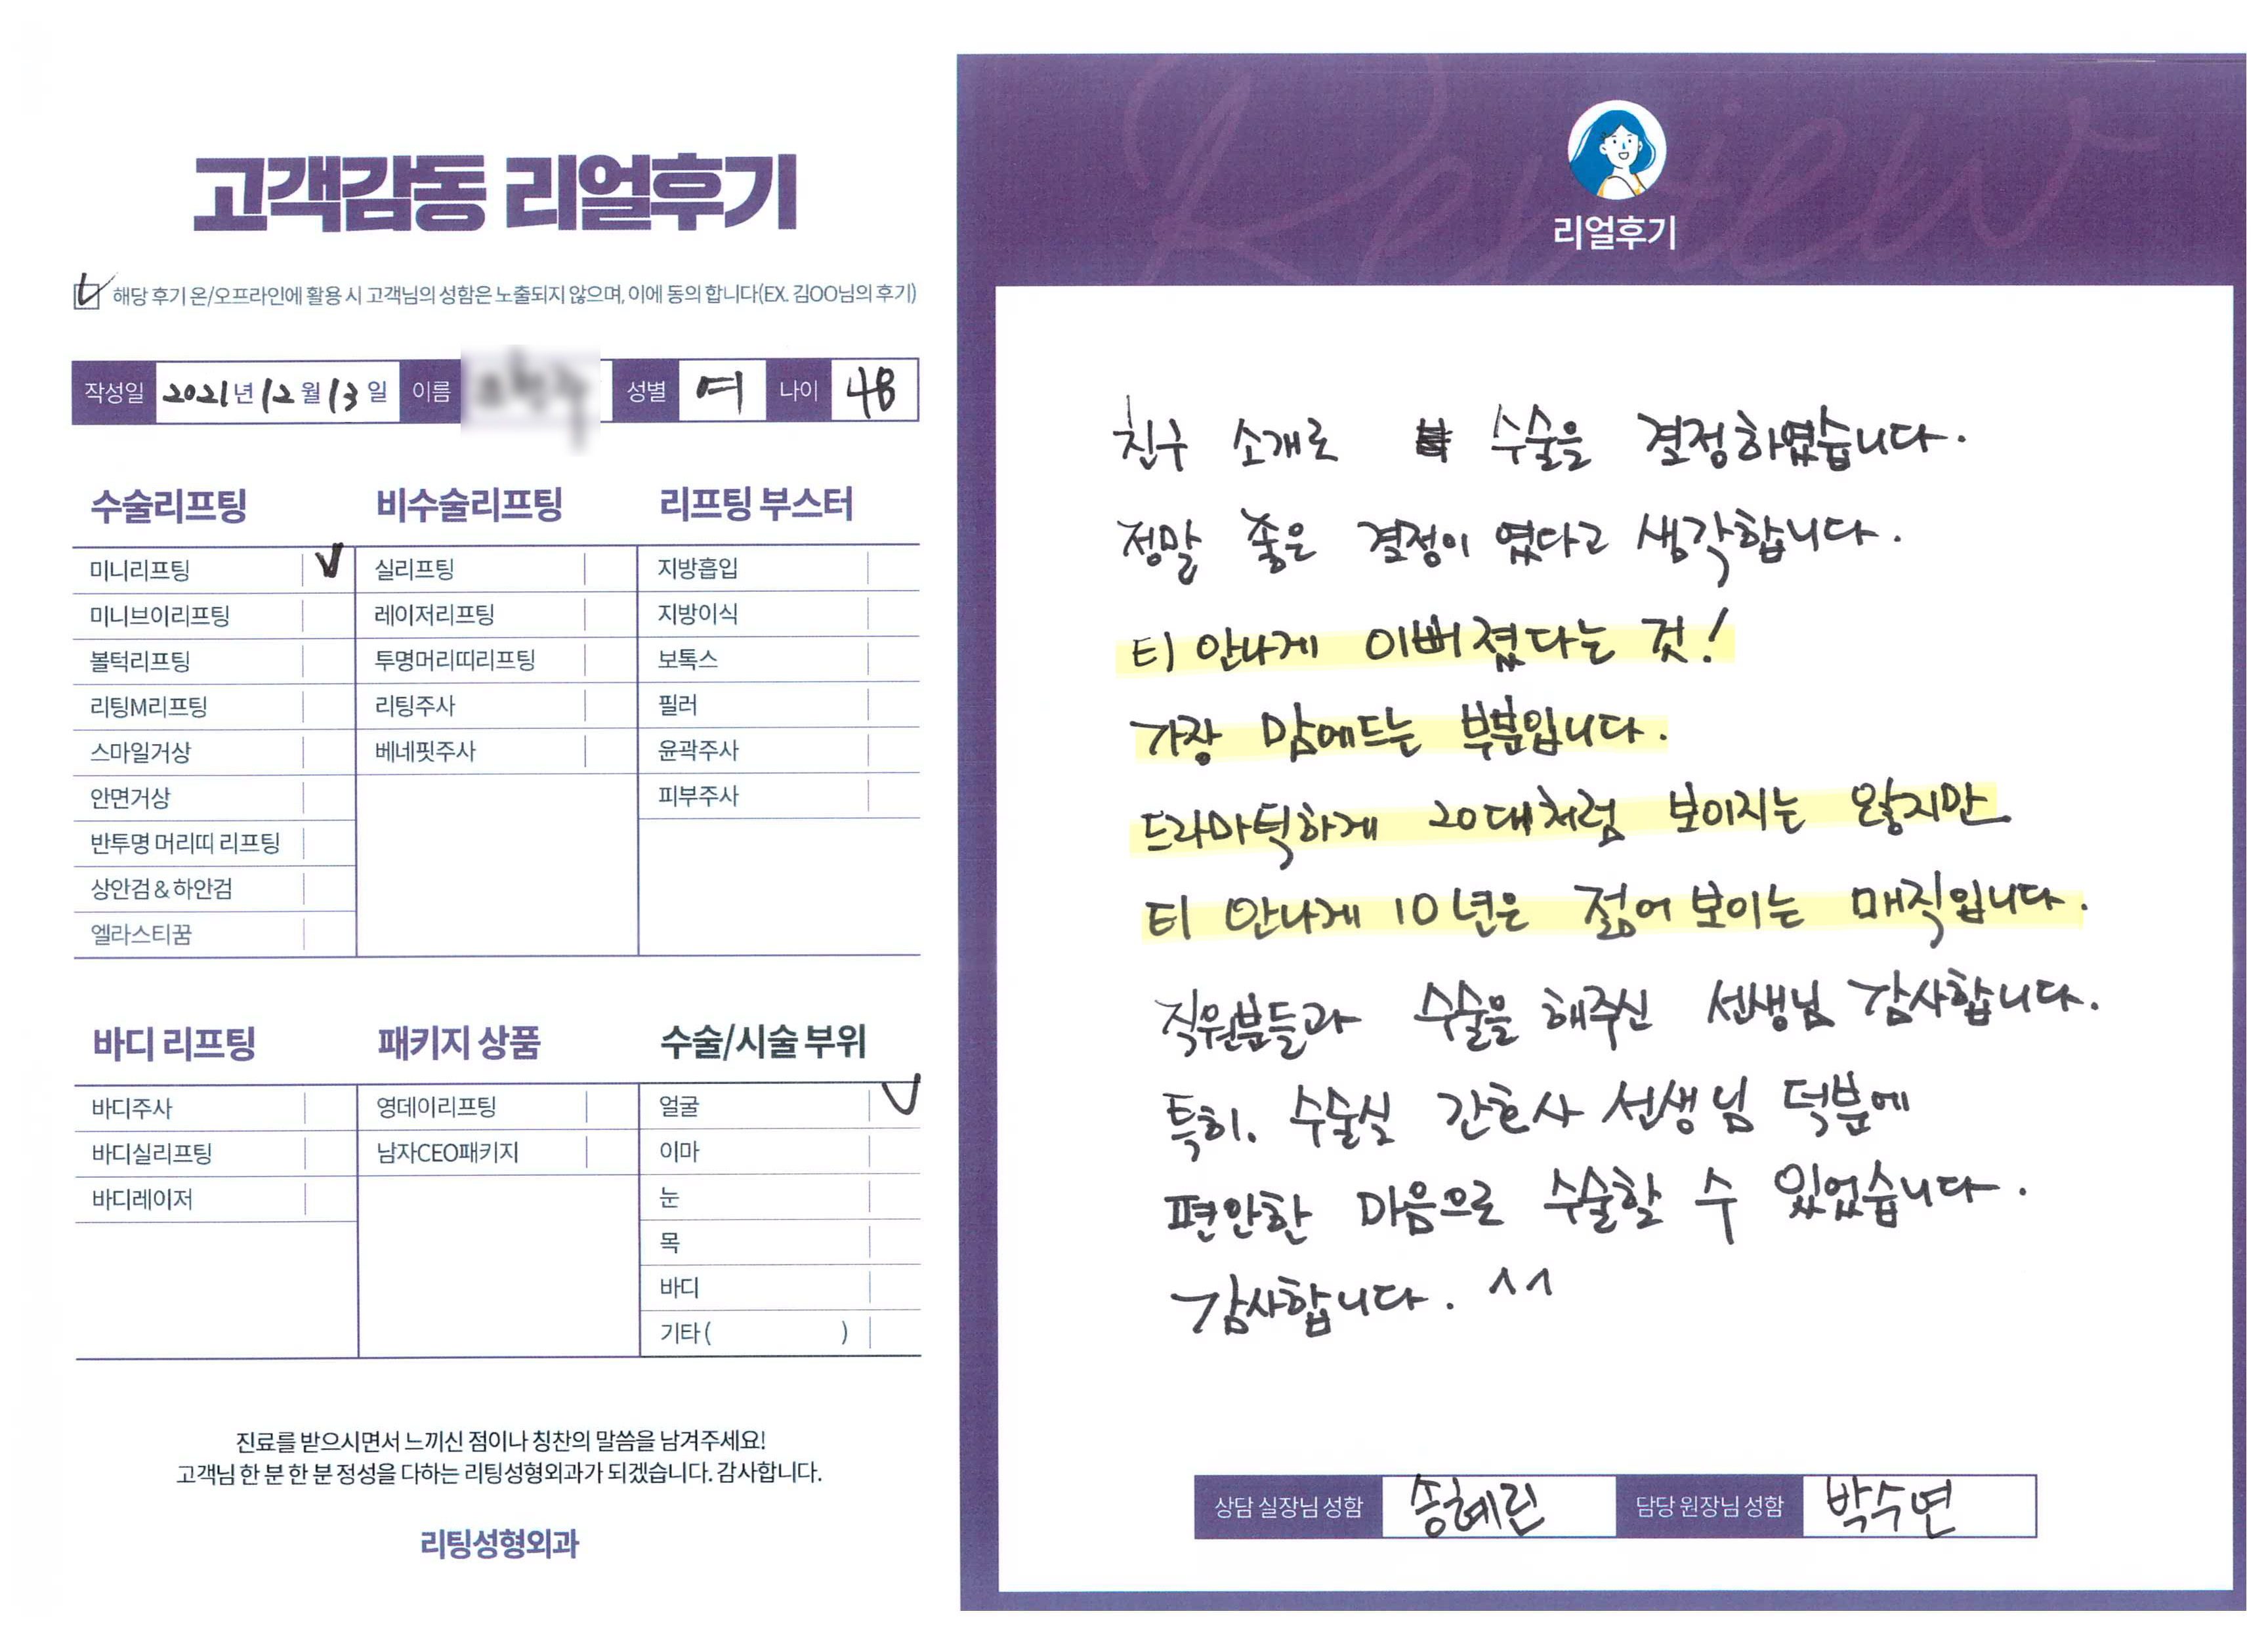 고객감동 리얼후기
해당 후기 온/오프라인에 활용 시 고객님의 성함은 노출되지 않으며, 이에 동의 합니다(EX. 김OO님의 후기)
작성일 2021년 12월 13일 이름 성별 여 나이 48
수술리프팅
미니리프팅
미니브이리프팅
볼턱리프팅
리팅M리프팅
스마일거상
안면거상
반투명 머리띠 리프팅
상안검 & 하안검
엘라스티꿈
비수술리프팅
실리프팅
레이저리프팅
투명머리띠리프팅
리팅주사
베네핏주사
리프팅 부스터
지방흡입
지방이식
보톡스
필러
윤곽주사
피부주사
바디 리프팅
바디주사
바디실리프팅
바디레이저
패키지 상품
영데이리프팅
남자CEO패키지
수술/시술 부위
얼굴
이마
눈
목
바디
기타 ( )
진료를 받으시면서 느끼신 점이나 칭찬의 말씀을 남겨주세요!
고객님 한 분 한 분 정성을 다하는 리팅성형외과가 되겠습니다. 감사합니다.
리팅성형외과
Review
리얼후기
친구 소개로 수술을 결정하였습니다.
정말 좋은 결정이 였다고 생각합니다.
티 안나게 이뻐졌다는 것!
가장 맘에드는 부분입니다.
드라마틱하게 20대처럼 보이지는 않지만
티 안나게 10년은 젊어 보이는 매직입니다.
직원분들과 수술을 해주신 선생님 감사합니다.
특히. 수술실 간호사 선생님 덕분에
편안한 마음으로 수술할 수 있었습니다.
감사합니다. ^^
상담 실장님 성함 송혜린 담당 원장님 성함 박수연